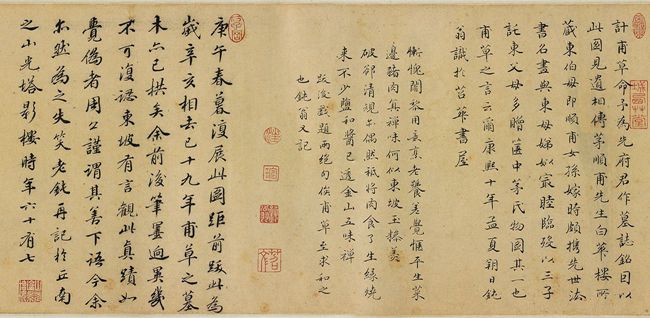 計甫草命予為先府君作墓誌銘因以
此圖見遺相傳茅順甫先生白華樓所
藏東伯母即順甫女孫嫁時頗攜先世法
書名畫與東母娣姒最睦臨歿以三子
託東父母多贈匳中茅氏物圖其一也
甫草之言云爾康熙十年孟夏朔日鈍
翁識於苕華書屋
慚愧闍黎用意真老饕差覺愜平生菜
邊豬肉真禪味何似東坡玉糝羹
破卻清規亦偶然秪將肉食了生緣燒
來不少鹽和醬已透金山五味禪
跋後戲題兩絕句俟甫草至求和之
也鈍翁又記
庚午春暮復展此圖距前跋此為
歲辛亥相去已十九年甫草之墓
木亦已拱矣余前後筆墨迥異幾
不可復認東坡有言觀此真蹟如
覺偽者周公謹謂其善下語今余
亦然為之失笑老鈍再記於丘南
之山光塔影樓時年六十有七